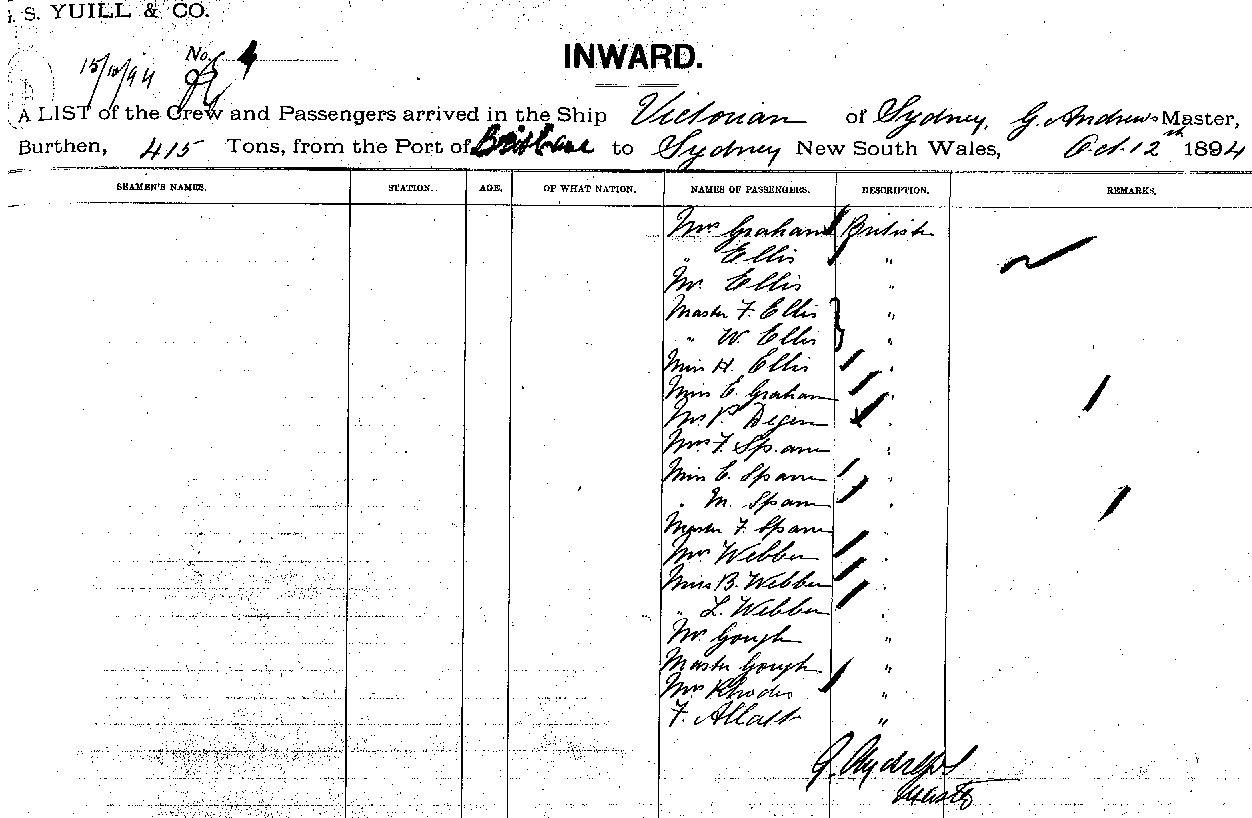 . S. YUILL & CO.
INWARD.
No. 4
15/10/94
A LIST of the Crew and Passengers arrived in the Ship Victorian of Sydney, G. Andrews Master,
Burthen, 415 Tons, from the Port of Brisbane to Sydney New South Wales, Oct. 12th 1894
SEAMEN'S NAMES. STATION. AGE. OF WHAT NATION. NAMES OF PASSENGERS. DESCRIPTION. REMARKS.
Mrs Graham British
" Ellis "
Mr. Ellis "
Master F. Ellis "
" W. Ellis "
Miss H. Ellis "
Miss E. Graham "
P. "
Mrs F. Spann "
Miss E. Spann "
" M. Spann "
Master F. Spann
Mrs Webber "
Miss B. Webber "
" L. Webber "
Mr. Gough "
Master Gough "
Mrs Rhodes "
F. Allatt "
G. Andrews
Master